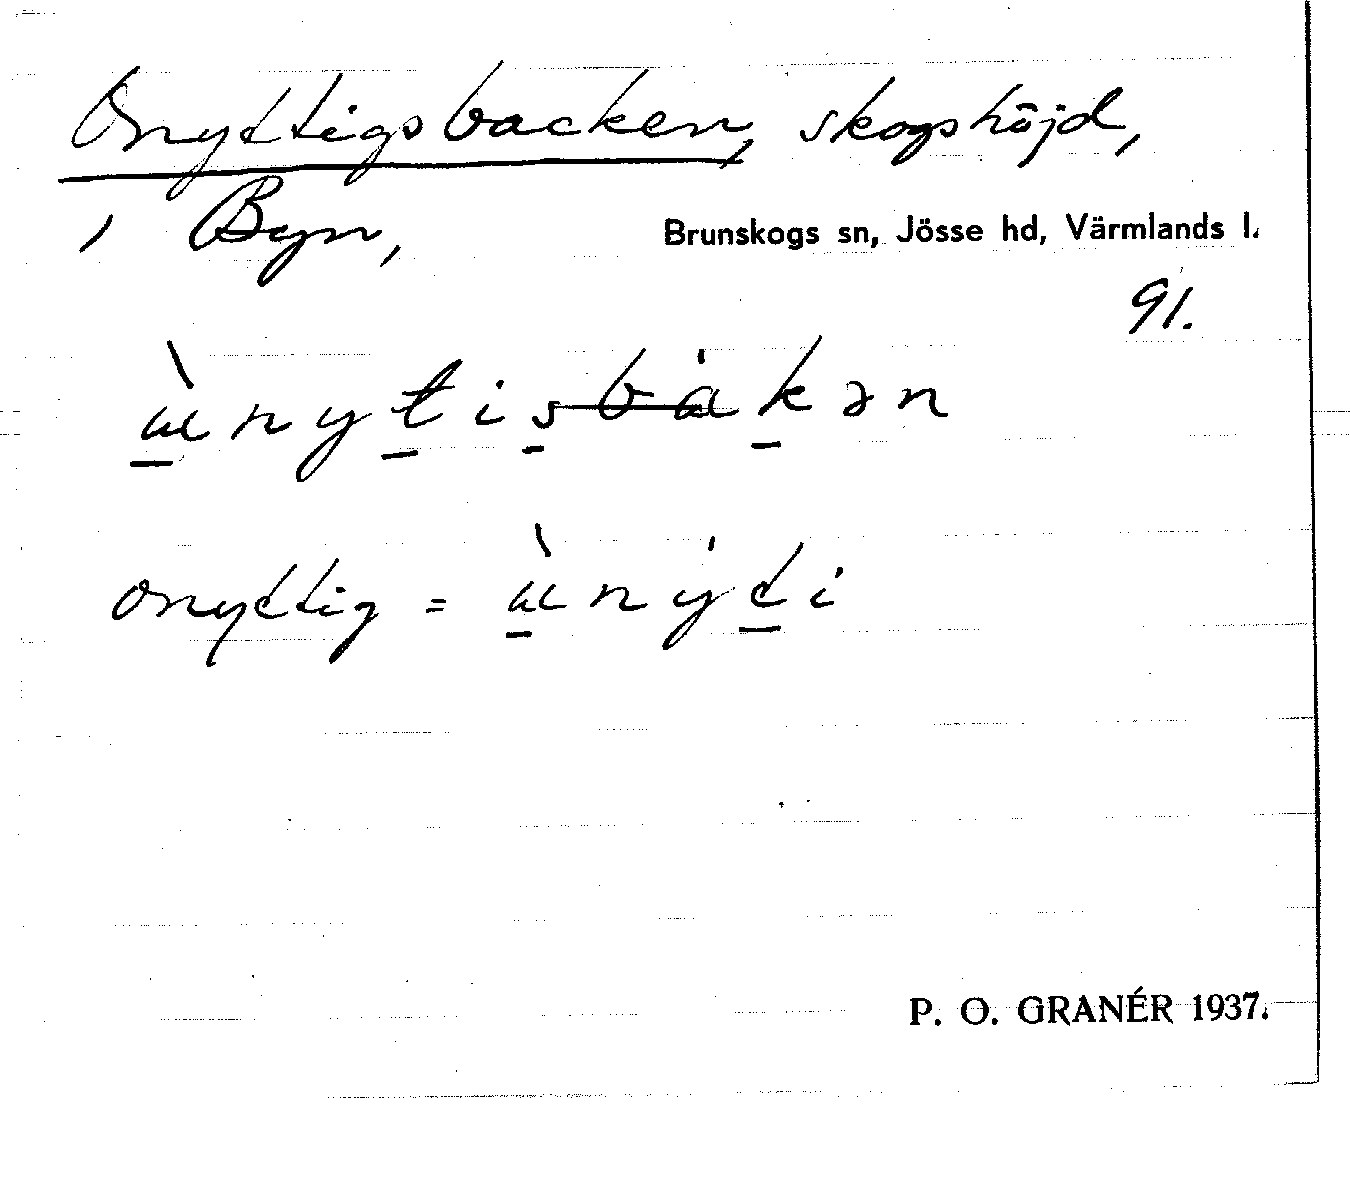 Onyttigsbacken, skogshöjd,
i Byn,
Brunskogs sn, Jösse hd, Värmlands l.
91.
ùnytisbákən
onyttig = ùnýti
P. O. GRANÉR 1937.